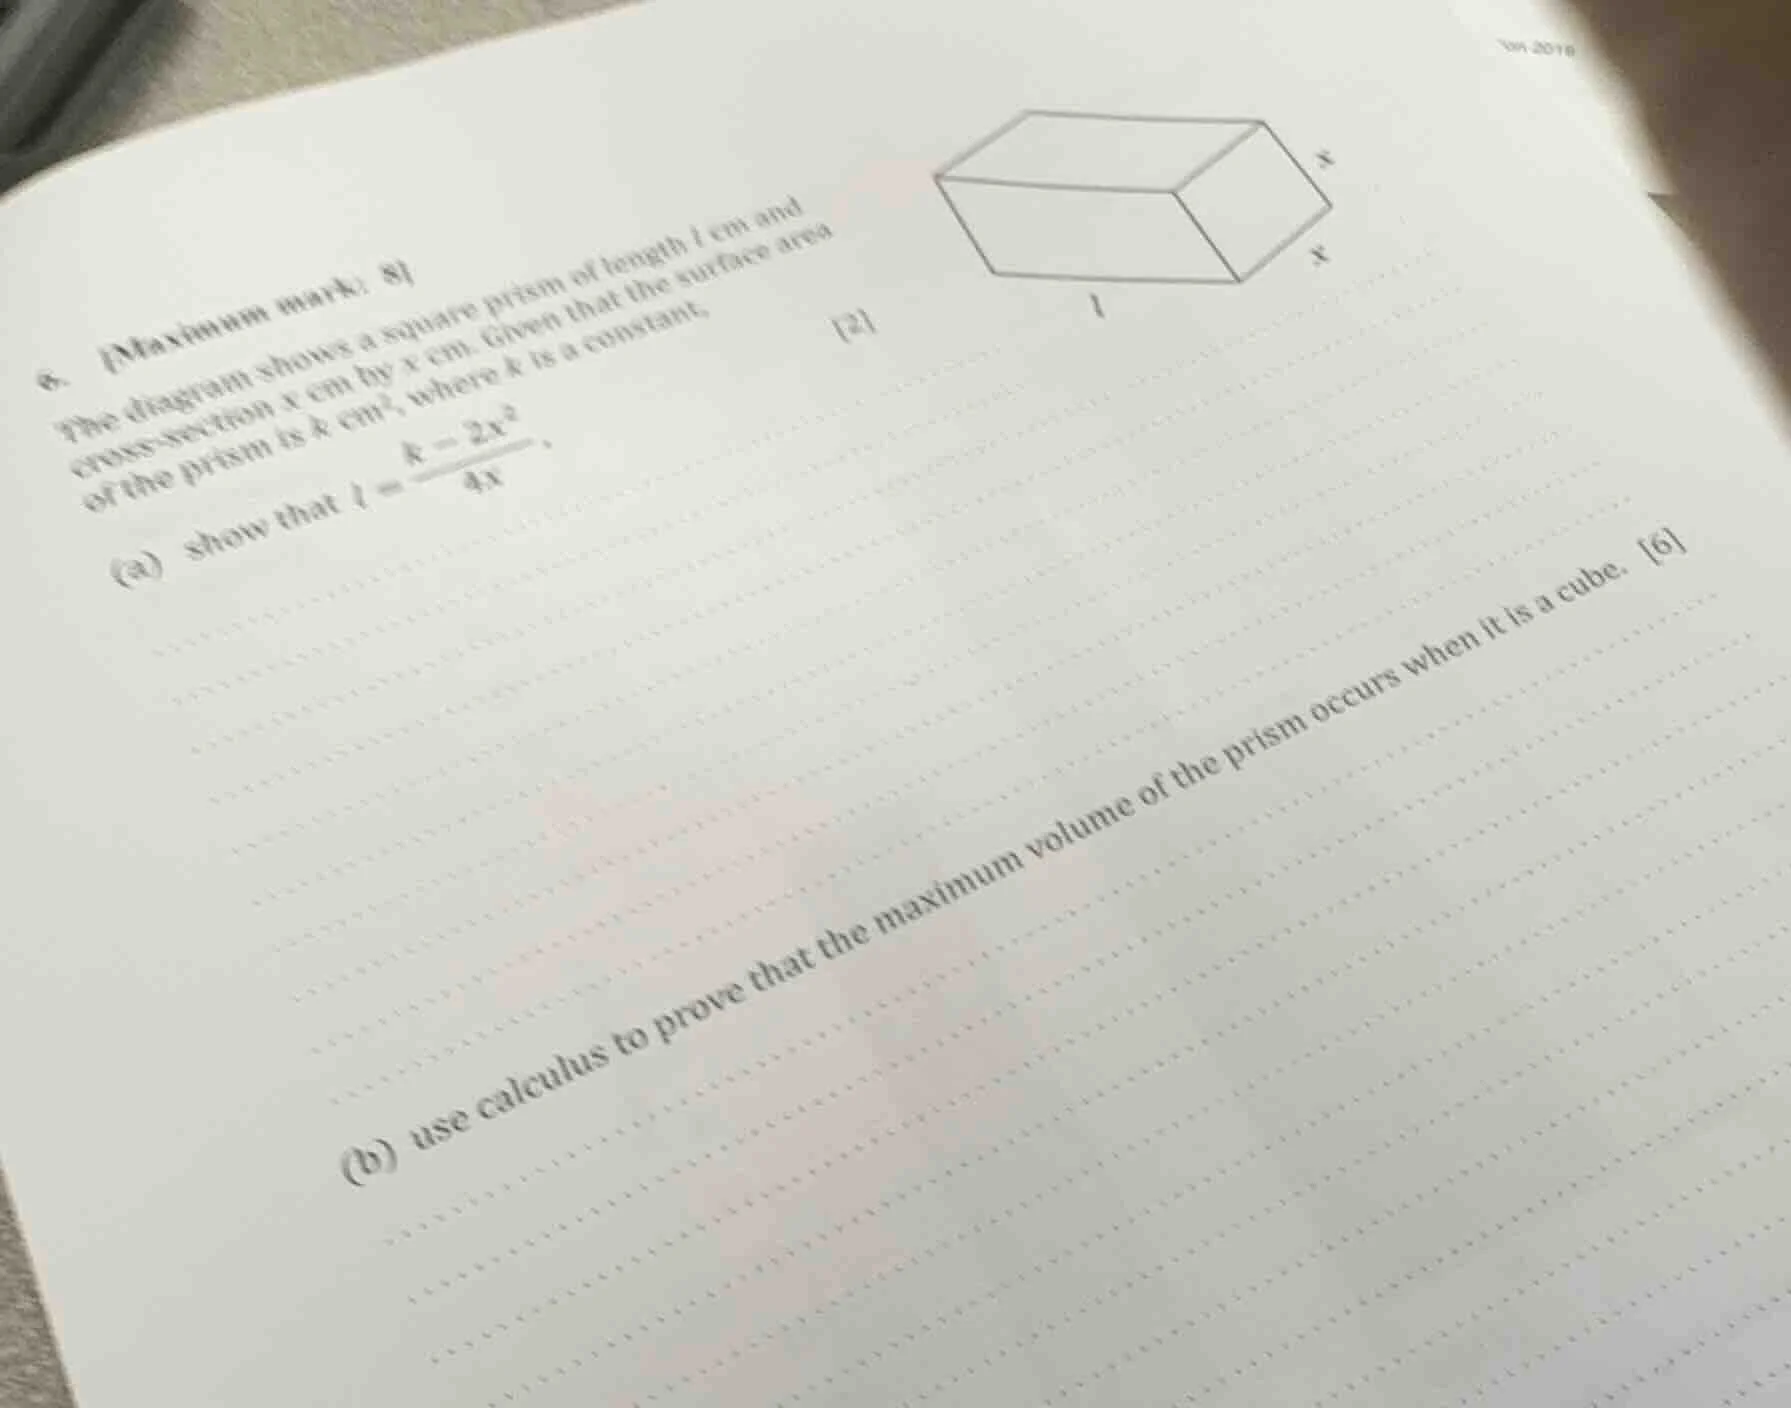 6. [Maximum mark: 8]
The diagram shows a square prism of length l cm and
cross-section x cm by x cm. Given that the surface area
of the prism is k cm², where k is a constant,
(a) show that l = \frac{k - 2x²}{4x}. [2]
x
x
l
(b) use calculus to prove that the maximum volume of the prism occurs when it is a cube. [6]